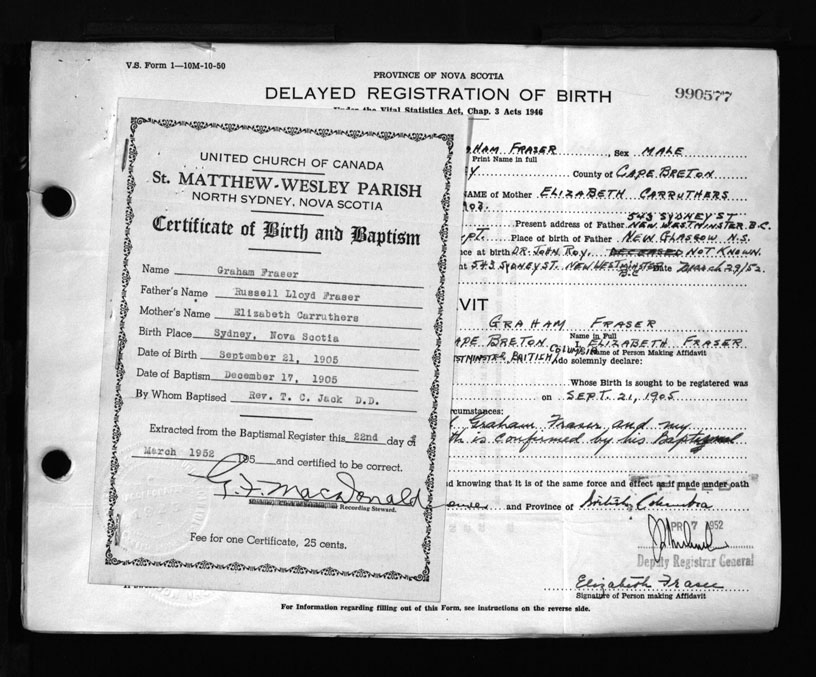 V.S. Form 1—10M-10-50
PROVINCE OF NOVA SCOTIA
DELAYED REGISTRATION OF BIRTH
990577
Under the Vital Statistics Act, Chap. 3 Acts 1946
UNITED CHURCH OF CANADA
St. MATTHEW-WESLEY PARISH
NORTH SYDNEY, NOVA SCOTIA
Certificate of Birth and Baptism
Name Graham Fraser
Father's Name Russell Lloyd Fraser
Mother's Name Elizabeth Carruthers
Birth Place Sydney, Nova Scotia
Date of Birth September 21, 1905
Date of Baptism December 17, 1905
By Whom Baptised Rev. T. C. Jack D.D.
Extracted from the Baptismal Register this 22nd day of
March 1952 195 and certified to be correct.
G. F. MacDonald
Recording Steward.
Fee for one Certificate, 25 cents.
HAM FRASER, Sex MALE
Print Name in full
County of CAPE BRETON
NAME of Mother ELIZABETH CARRUTHERS
903.
543 SYDNEY ST
Present address of Father NEW WESTMINSTER B.C.
PT. Place of birth of Father NEW GLASGOW N.S.
ce at birth DR. JOHN ROY, DECEASED NOT KNOWN.
at 543 SYDNEY ST. NEW WESTMINSTER B.C Date March 29/52
VIT
GRAHAM FRASER
Name in Full
APE BRETON I, ELIZABETH FRASER
Name of Person Making Affidavit
STMINSTER, BRITISH COLUMBIA do solemnly declare:
Whose Birth is sought to be registered was
on SEPT. 21, 1905
circumstances:
Graham Fraser, and my
th is confirmed by his Baptismal
d knowing that it is of the same force and effect as if made under oath
and Province of British Columbia
APR 7 1952
Deputy Registrar General
Elizabeth Fraser
Signature of Person making Affidavit
For Information regarding filling out of this Form, see instructions on the reverse side.